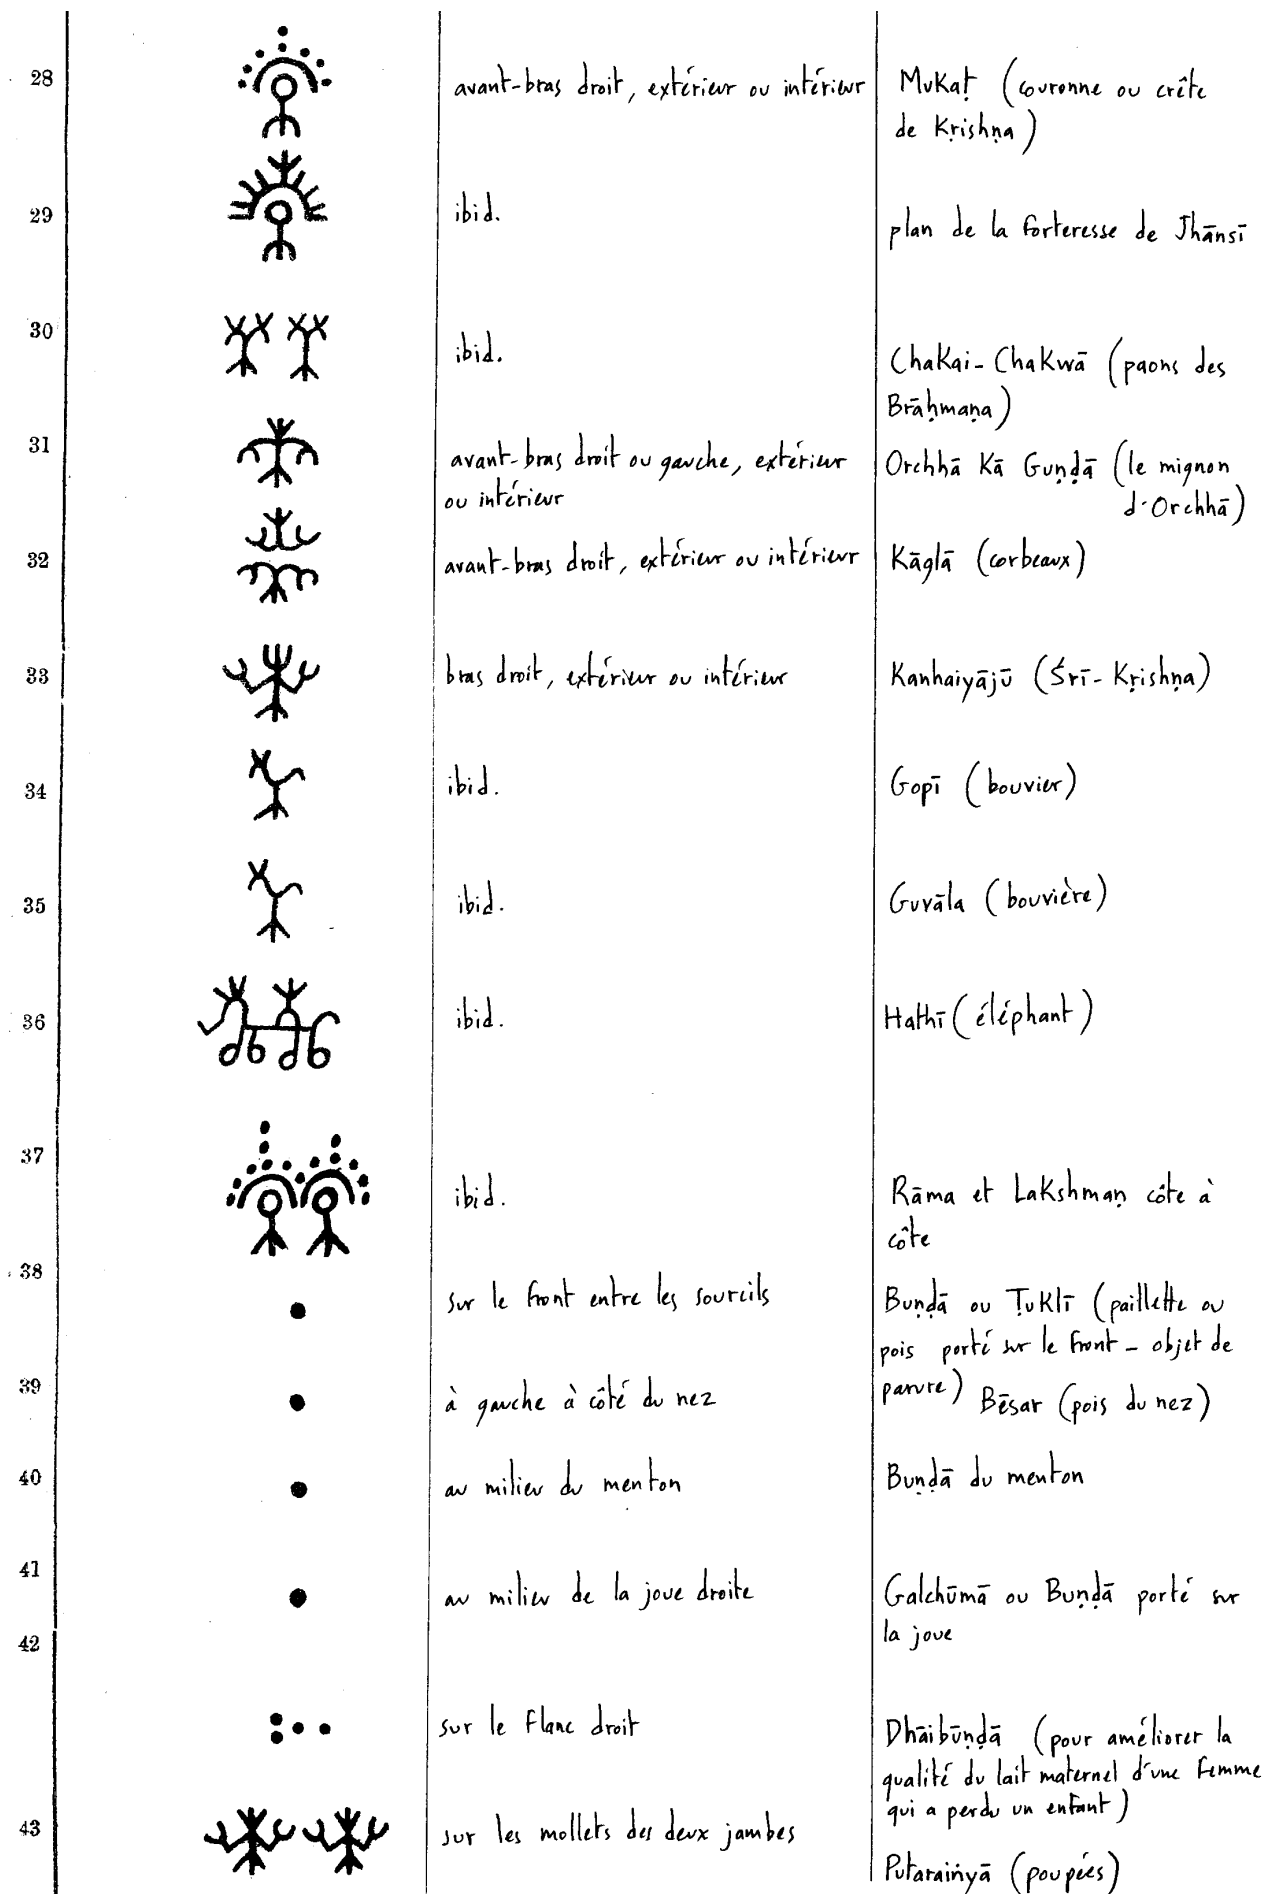 28
avant-bras droit, extérieur ou intérieur
Mukaṭ (couronne ou crête
de Kṛishṇa)
29
ibid.
plan de la forteresse de Jhānsī
30
ibid.
Chakai-Chakwā (paons des
Brāḥmaṇa)
31
avant-bras droit ou gauche, extérieur
ou intérieur
Orchhā Kā Guṇḍā (le mignon
d'Orchhā)
32
avant-bras droit, extérieur ou intérieur
Kāglā (corbeaux)
33
bras droit, extérieur ou intérieur
Kanhaiyājū (Śrī-Kṛishṇa)
34
ibid.
Gopī (bouvier)
35
ibid.
Guvāla (bouvière)
36
ibid.
Hathī (éléphant)
37
ibid.
Rāma et Lakshmaṇ côte à
côte
38
sur le front entre les sourcils
Buṇḍā ou Ṭuklī (paillette ou
pois porté sur le front - objet de
parure)
39
à gauche à côté du nez
Bēsar (pois du nez)
40
au milieu du menton
Buṇḍā du menton
41
au milieu de la joue droite
Galchūmā ou Buṇḍā porté sur
la joue
42
sur le flanc droit
Dhāibūṇḍā (pour améliorer la
qualité du lait maternel d'une femme
qui a perdu un enfant)
43
sur les mollets des deux jambes
Putaraiṅyā (poupées)